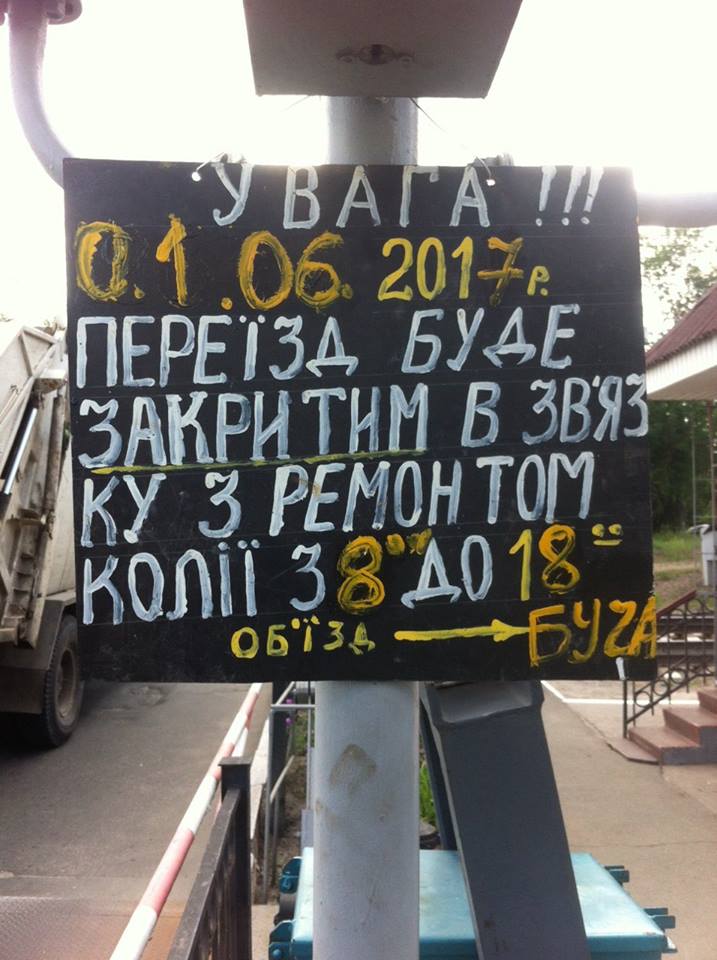 УВАГА !!!
0.1.06. 2017 р.
ПЕРЕЇЗД БУДЕ
ЗАКРИТИМ В ЗВ'ЯЗ
КУ З РЕМОНТОМ
КОЛІЇ З 8⁰⁰ ДО 18⁰⁰
ОБ'ЇЗД → БУЧА